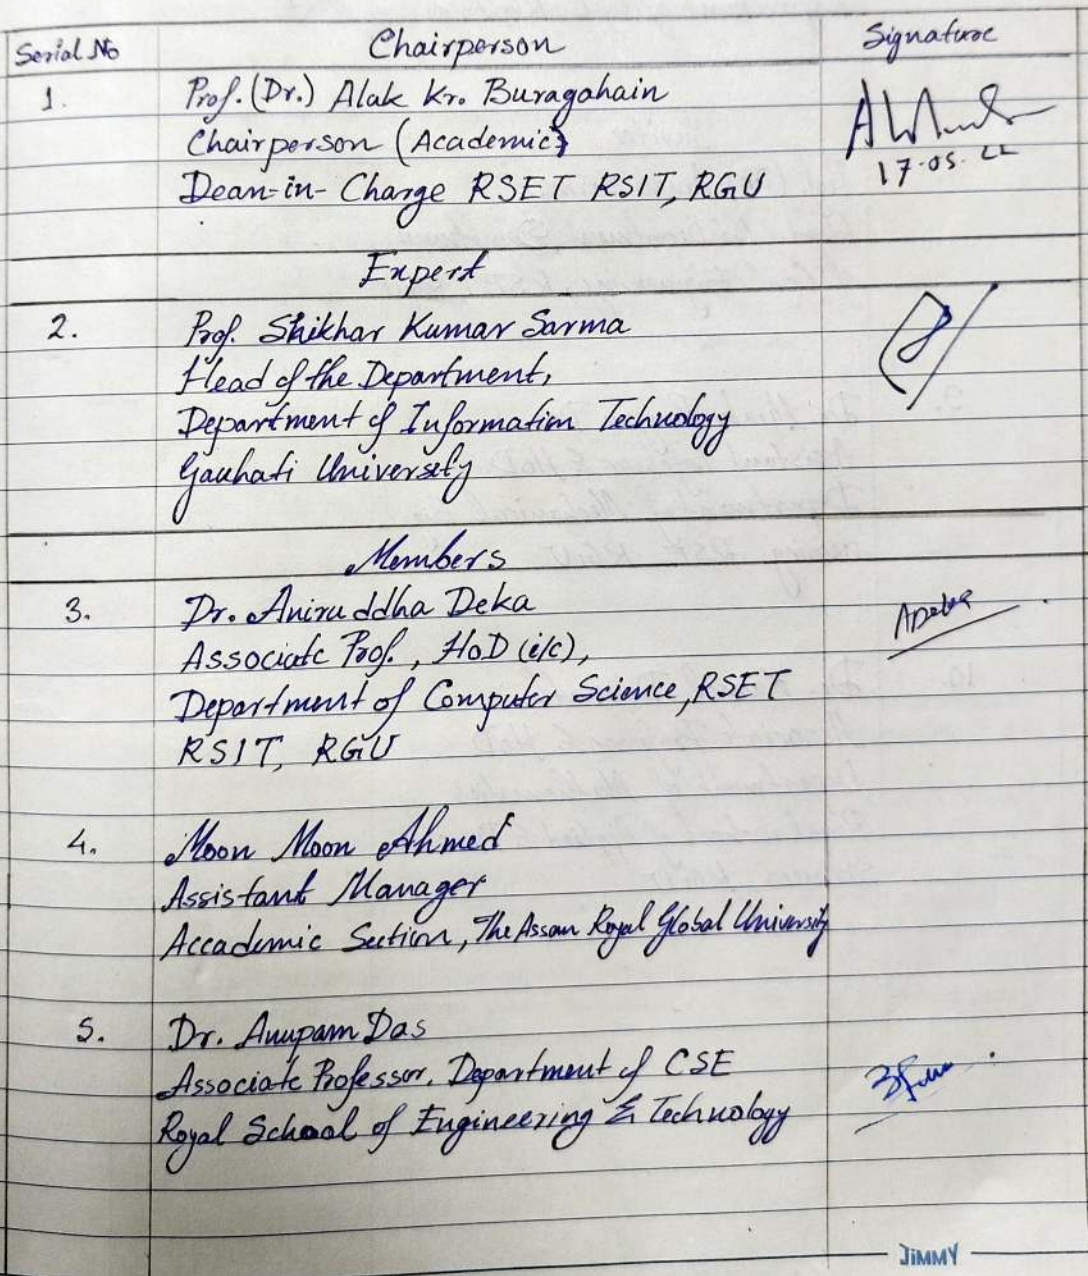 Serial No Chairperson Signature
1. Prof. (Dr.) Alak Kr. Buragahain
Chairperson (Academic)
17.05.22
Dean-in-Charge RSET RSIT, RGU
Expert
2. Prof. Shikhar Kumar Sarma
Head of the Department,
Department of Information Technology
Gauhati University
Members
3. Dr. Aniruddha Deka
ADeka
Associate Prof., HoD (i/c),
Department of Computer Science, RSET
RSIT, RGU
4. Moon Moon Ahmed
Assistant Manager
Accademic Section, The Assam Royal Global University
5. Dr. Anupam Das
Associate Professor, Department of CSE
Royal School of Engineering & Technology
JIMMY